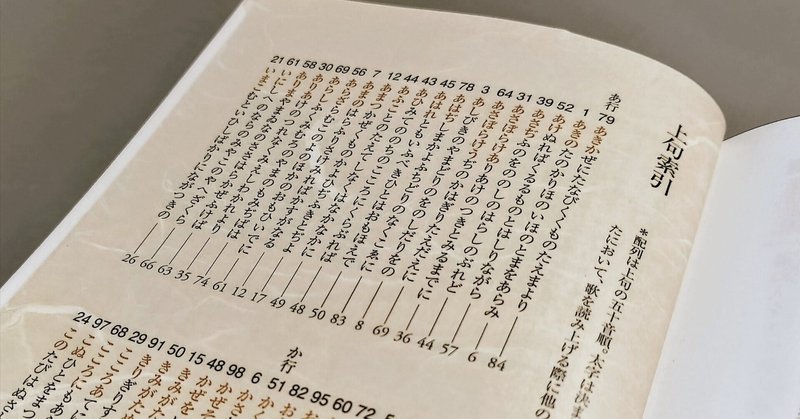 上句索引
*配列は上句の五十音順。太字は決ま
たにおいて、歌を読み上げる際に他の
あ行
79 あきかぜにたなびくくものたえまより 84
1 あきのたのかりほのいほのとまをあらみ 6
52 あけぬればくるるものとはしりながら 57
39 あさぢふのをののしのはらしのぶれど 44
31 あさぼらけありあけのつきとみるまでに 36
64 あさぼらけうぢのかはぎりたえだえに 69
3 あしびきのやまどりのをのしだりをの 8
78 あはぢしまかよふちどりのなくこゑに 83
45 あはれともいふべきひとはおもほえで 50
43 あひみてののちのこころにくらぶれば 48
44 あふことのたえてしなくはなかなかに 49
12 あまつかぜくものかよひぢふきとぢよ 17
7 あまのはらふりさけみればかすがなる 12
56 あらざらむこのよのほかのおもひいでに 61
69 あらしふくみむろのやまのもみぢばは 74
30 ありあけのつれなくみえしわかれより 35
58 ありまやまゐなのささはらかぜふけば 63
61 いにしへのならのみやこのやへざくら 66
21 いまこむといひしばかりにながつきの 26
72
60 お
95 お
82 お
か行
51 か
6 かさ
98 かぜそ
48 かぜを
15 きみが
50 きみがた
91 きりぎり
29 こころあて
68 こころに
97 こぬひとを
24 このたびはぬさ